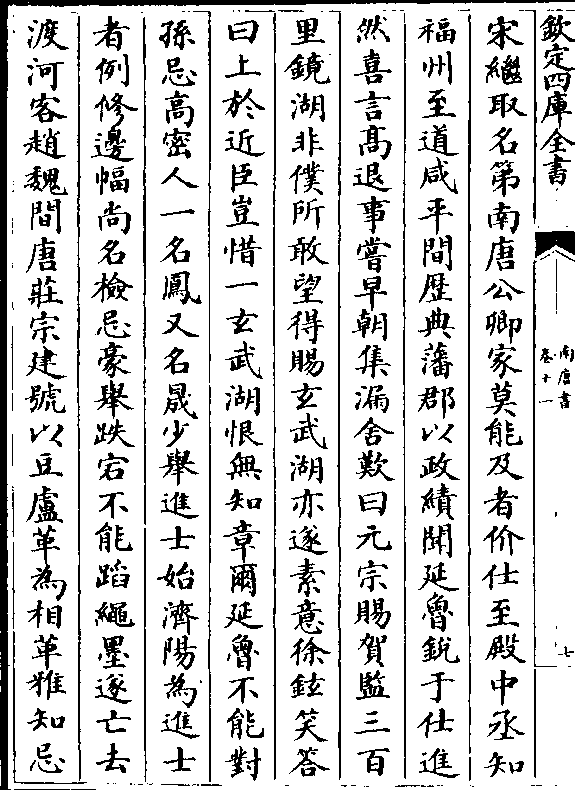 欽定四庫全書
南唐書
卷十一
七
宋繼取名第南唐公卿家莫能及者价仕至殿中丞知
福州至道咸平間歴典藩郡以政績聞延魯鋭于仕進
然喜言髙退事嘗早朝集漏舍歎曰元宗賜賀監三百
里鏡湖非僕所敢望得賜玄武湖亦遂素意徐鉉笑答
曰上於近臣豈惜一玄武湖恨無知章爾延魯不能對
孫忌高密人一名鳳又名晟少舉進士始濟陽為進士
者例修邊幅尚名檢忌豪舉跌宕不能蹈繩墨遂亡去
渡河客趙魏間唐莊宗建號以豆盧革為相革雅知忌